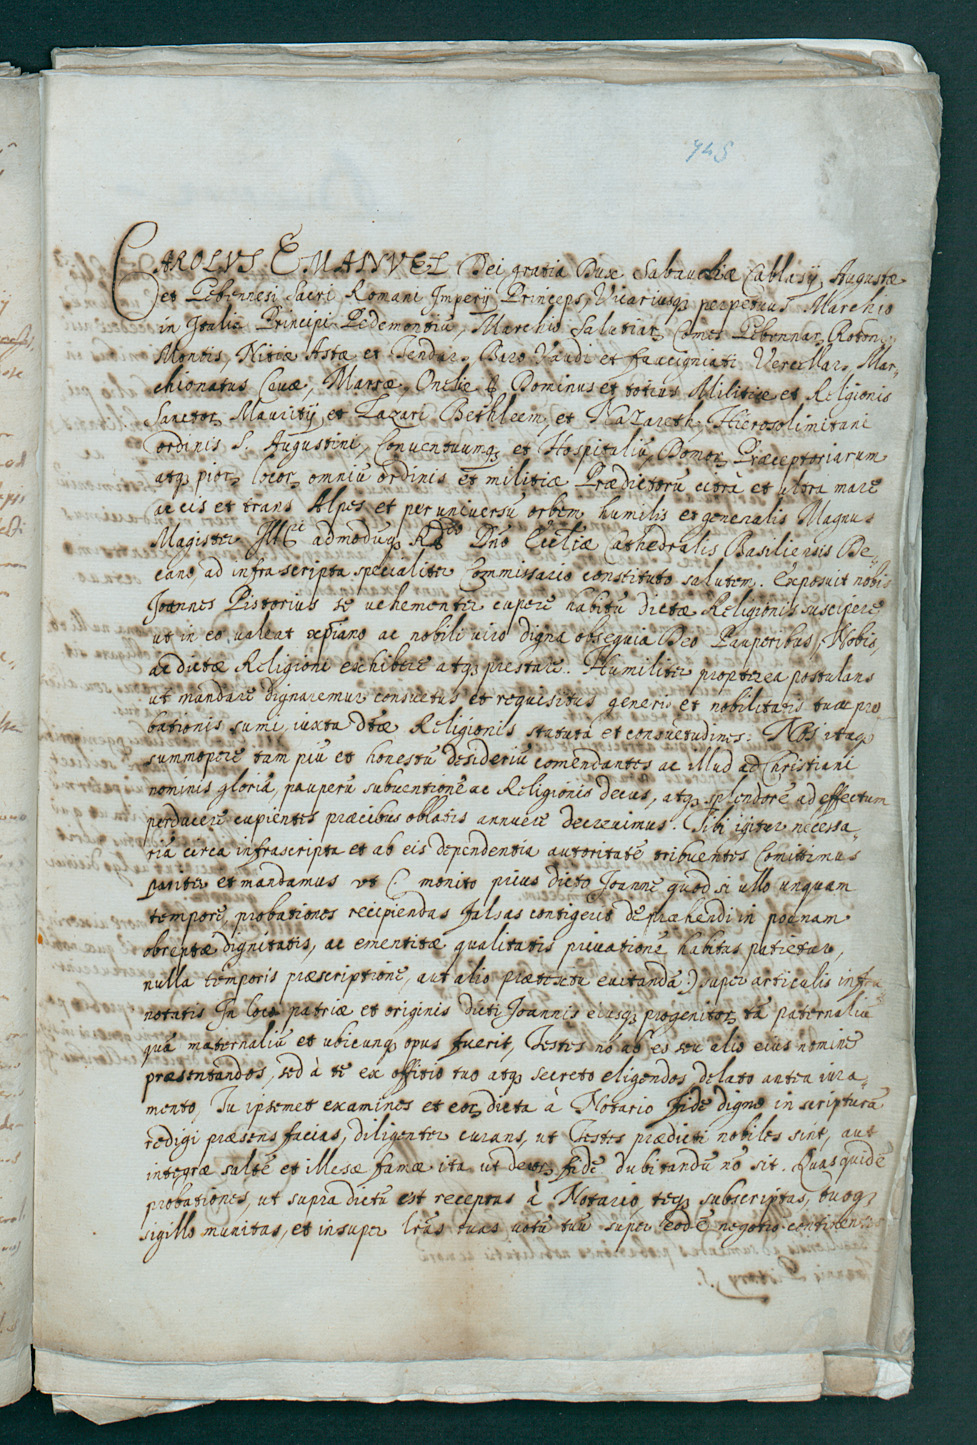 745
CAROLVS EMANVEL Dei gratia Dux Sabaudiæ Cablasij, Augustæ
et Gebennesi Sacri Romani Imperij Princeps, Vicariusq perpetuus Marchio
in Italia Princips Pedemontiũ, Marchio Salutiar, Comes Gebennar, Roton,
Montis, Niciæ Astæ et Tendar, Baro Vaudi et faucigniati Vercellar, Mar-
chionatus Cevæ, Onelie Dominus et totius Militiæ et Religionis
Sanctor Mauritij et Lazari Bethleem, et Nazareth, Hierosolimitani
ordinis S. Augustini, Conventuumq et Hospitaliũ, Domor, Præceptoriarum
atq pior locor omniũ ordinis et militiæ Prædictorũ citrà et ultra mare
ac cis et trans Alpes et per universũ orbem humilis et generalis Magnus
Magister admodũ Rdo Dño Eccliæ Cathedralis Basiliensis De-
cano, ad infrascripta specialiter Commissario constituto salutem. Exposuit nobis
Joannes Pistorius se vehementer cupere habitũ dictæ Religionis suscipere
ut in eo valeat xpiano ac nobili viro digna obsequia Deo Pauperibus, Nobis,
ac dictæ Religioni exhibere atq prestare. Humiliter propterea postulans
ut mandare dignaremur consuetas et requisitas generis et nobilitatis suæ pro
bationis sumi, iuxta dtæ Religionis statuta et consuetudines. Nos itaq
summopere tam piũ et honestũ desideriũ comendantes ac illud ad Christiani
nominis gloriã, pauperũ subventionẽ ac Religionis decus, atq splendorẽ ad effectum
perducere cupientes præcibus oblatis annuere decrevimus. Tibi igitur necessa
riã circa infrascripta et ab eis dependentia autoritatẽ tribuentes Comittimus
pariter et mandamus ut (: monito prius dicto Joanne quod si ullo unquam
tempore, probationes recipiendas falsas contigerit depræhendi in poenam
obreptæ dignitatis, ac ementitæ qualitatis privationẽ habitus patietur,
nulla temporis præscriptione, aut alio prætextu evitandã :) super articulis infra
notatis In loco patriæ et originis dicti Joannis eiusq progenitor tã paternaliũ
quã maternaliũ et ubicunq opus fuerit, Testes nõ ab eo seu alio eius nomine
præsentandos, sed à te ex offitio tuo atq secreto eligendos, delato antea iura,
mento, Tu ipsemet examines et eor dicta à Notario fide digno in scripturã
redigi præsens facias, diligenter curans, ut Testes prædicti nobiles sint, aut
integræ saltẽ et illesæ famæ ita ut de eor fide dubitandũ nõ sit. Quasquidẽ
probationes, ut supra dictũ est receptas à Notario, teq subscriptas, tuoq
sigillo munitas, et insuper lras tuas votũ tuũ super eodẽ negotio continen